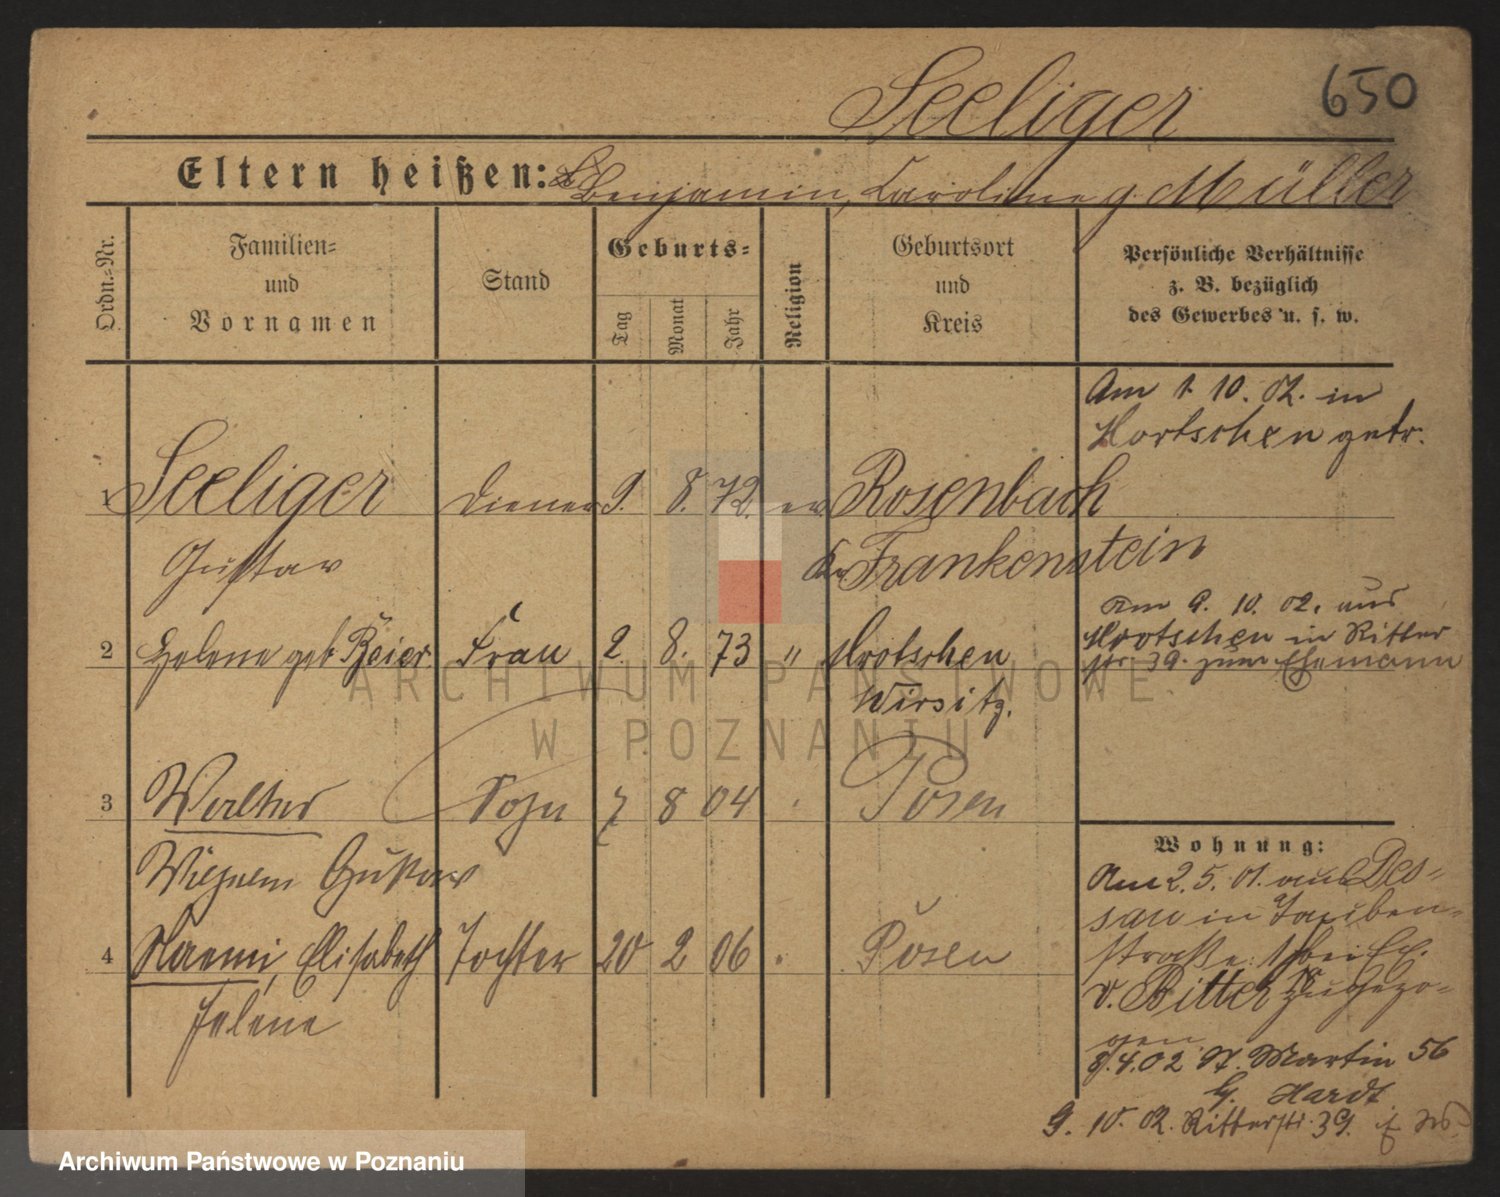 650
Seeliger
Eltern heißen: Benjamin, Caroline g. Müller
Ordn.=Nr.
Familien=
und
Vornamen
Stand
Geburts=
Tag
Monat
Jahr
Religion
Geburtsort
und
Kreis
Persönliche Verhältnisse
z. B. bezüglich
des Gewerbes u. s. w.
Am 1. 10. 02. in
getr.
1 Seeliger Diener 9. 8. 72. ev. Rosenbach
Gustav Kr. Frankenstein
Am 9. 10. 02. aus
in Ritter
2 Helene geb. Beier Frau 2. 8. 73 " Mrotschen
str. 39. zum Ehemann
Wirsitz.
3 Walther Sohn 7 8 04 Posen
Wilhelm Gustav
4 Naemi, Elisabeth Tochter 20 2 06 Posen
Helene
Wohnung:
Am 2. 5. 01. aus Des-
sau in Tauben-
straße 1 bei
v. Bitter zugezo-
gen
8.4.02 St. Martin 56
b. Hardt
9. 10. 02. Ritterstr. 39.
ARCHIWUM PAŃSTWOWE
W POZNANIU
Archiwum Państwowe w Poznaniu